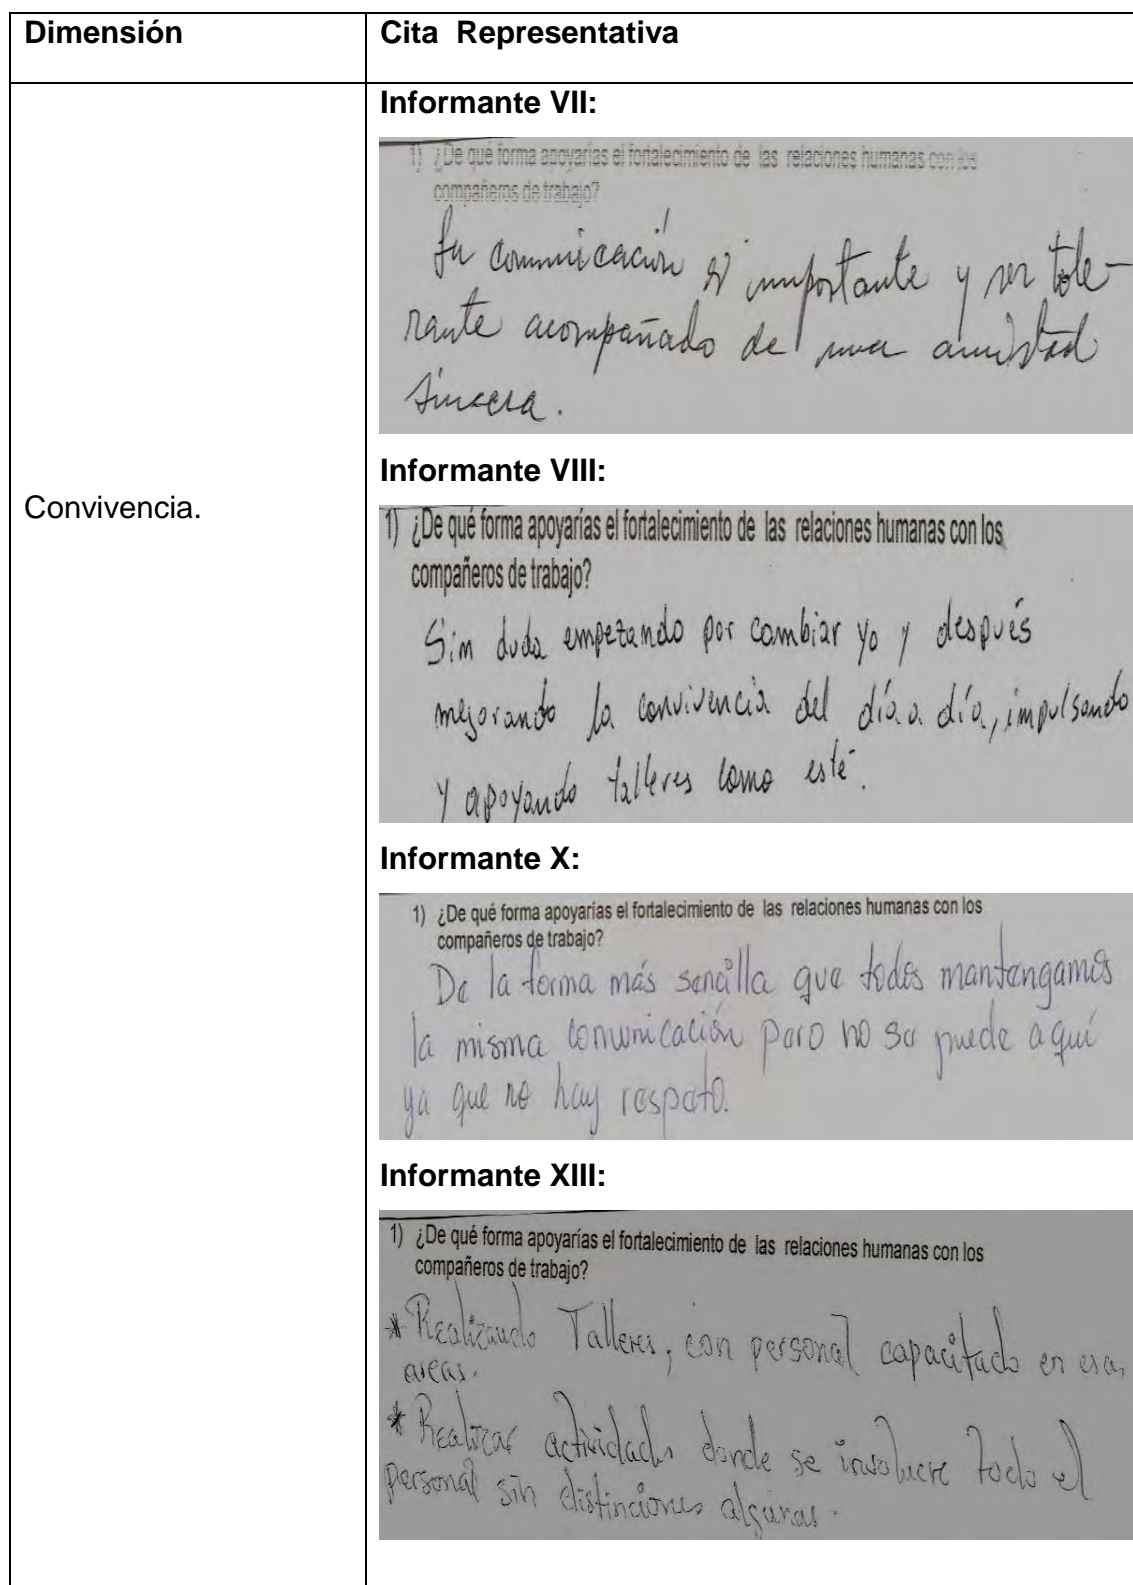 Dimensión
Cita Representativa
Convivencia.
Informante VII:
1) ¿De qué forma apoyarías el fortalecimiento de las relaciones humanas con los
compañeros de trabajo?
comunicación importante y ser tole-
rante acompañado de una amistad
sincera.
Informante VIII:
1) ¿De qué forma apoyarías el fortalecimiento de las relaciones humanas con los
compañeros de trabajo?
Sin duda empezando por cambiar yo y después
mejorando la convivencia del día a día, impulsando
y apoyando talleres como esté.
Informante X:
1) ¿De qué forma apoyarías el fortalecimiento de las relaciones humanas con los
compañeros de trabajo?
De la forma más sencilla que todos mantengamos
la misma comunicación pero no se puede aquí
ya que no hay respeto.
Informante XIII:
1) ¿De qué forma apoyarías el fortalecimiento de las relaciones humanas con los
compañeros de trabajo?
* Realizando Talleres, con personal capacitado en esas
areas.
* Realizar actividades donde se involucre todo el
personal sin distinciones algunas.